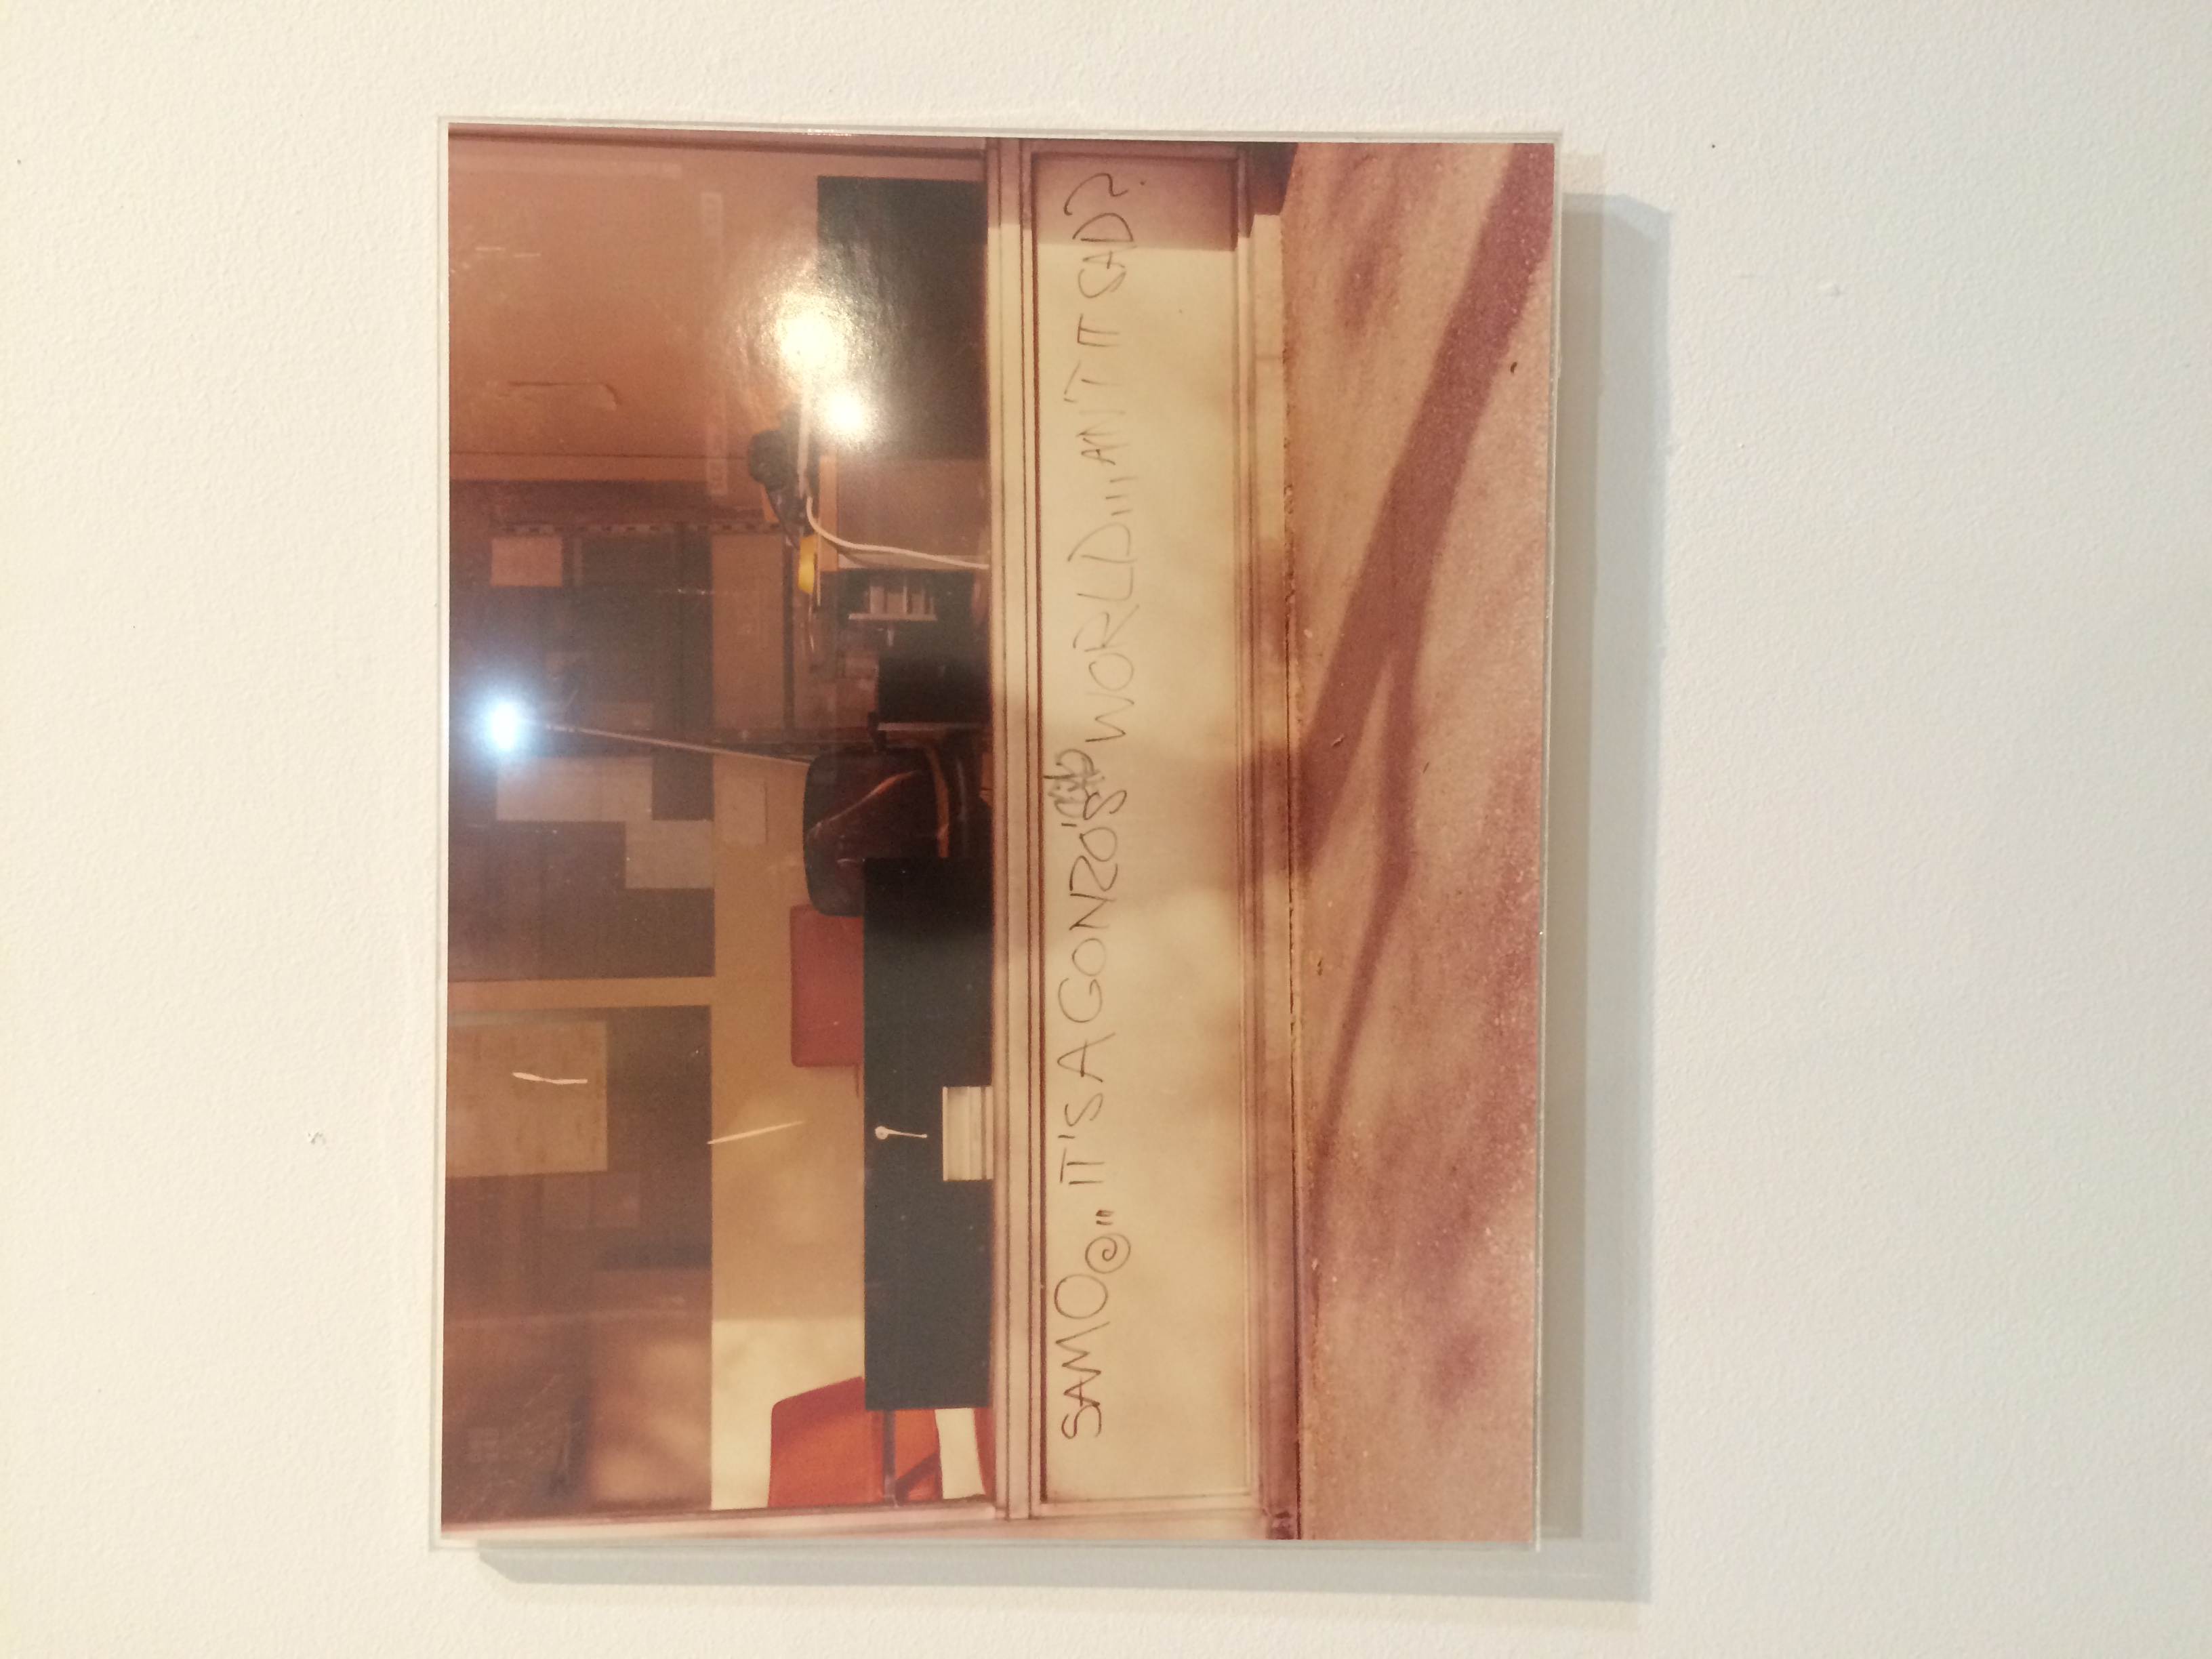 SAMO©,,, IT'S A GONZO'S WORLD,,, AIN'T IT SAD?